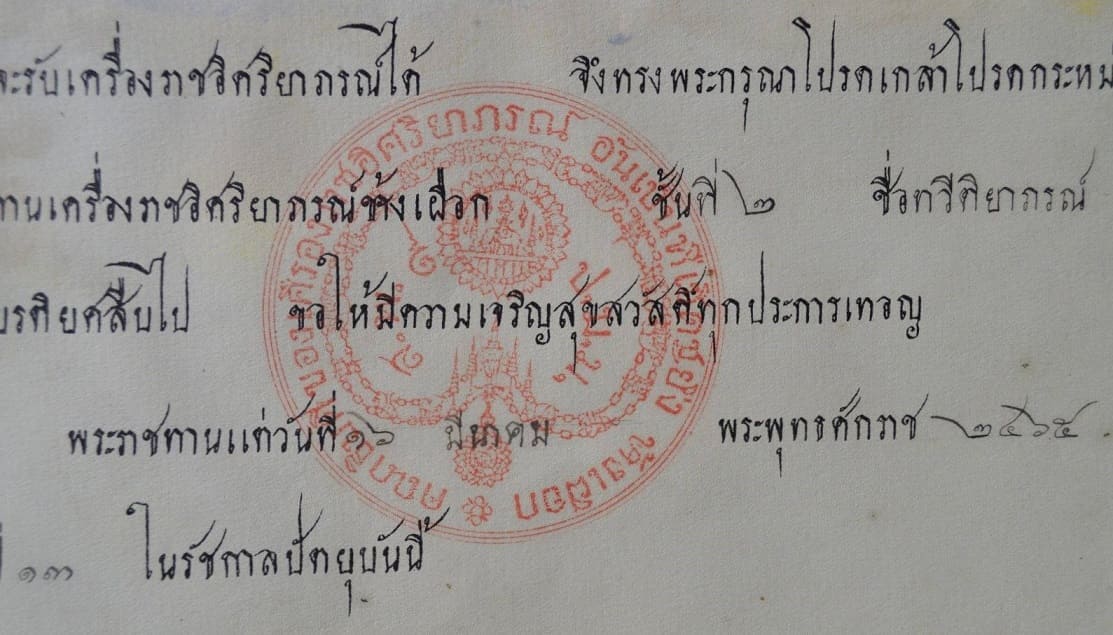 จะรับเครื่องราชอิศริยาภรณ์ได้ จึงทรงพระกรุณาโปรดเกล้าโปรดกระหม
ทานเครื่องราชอิศริยาภรณ์ช้างเผือก ชั้นที่ ๒ ชื่อทวีติยาภรณ์
บรติยศสืบไป ขอให้มีความเจริญสุขสวัสดิ์ทุกประการเทอญ
พระราชทานแต่วันที่ ๑๖ มีนาคม พระพุทธศักราช ๒๔๖๕
ที่ ๑๓ ในรัชกาลปัตยุบันนี้
เครื่องราชอิศริยาภรณ์ อันเป็นที่เชิดชูยิ่ง ช้างเผือก